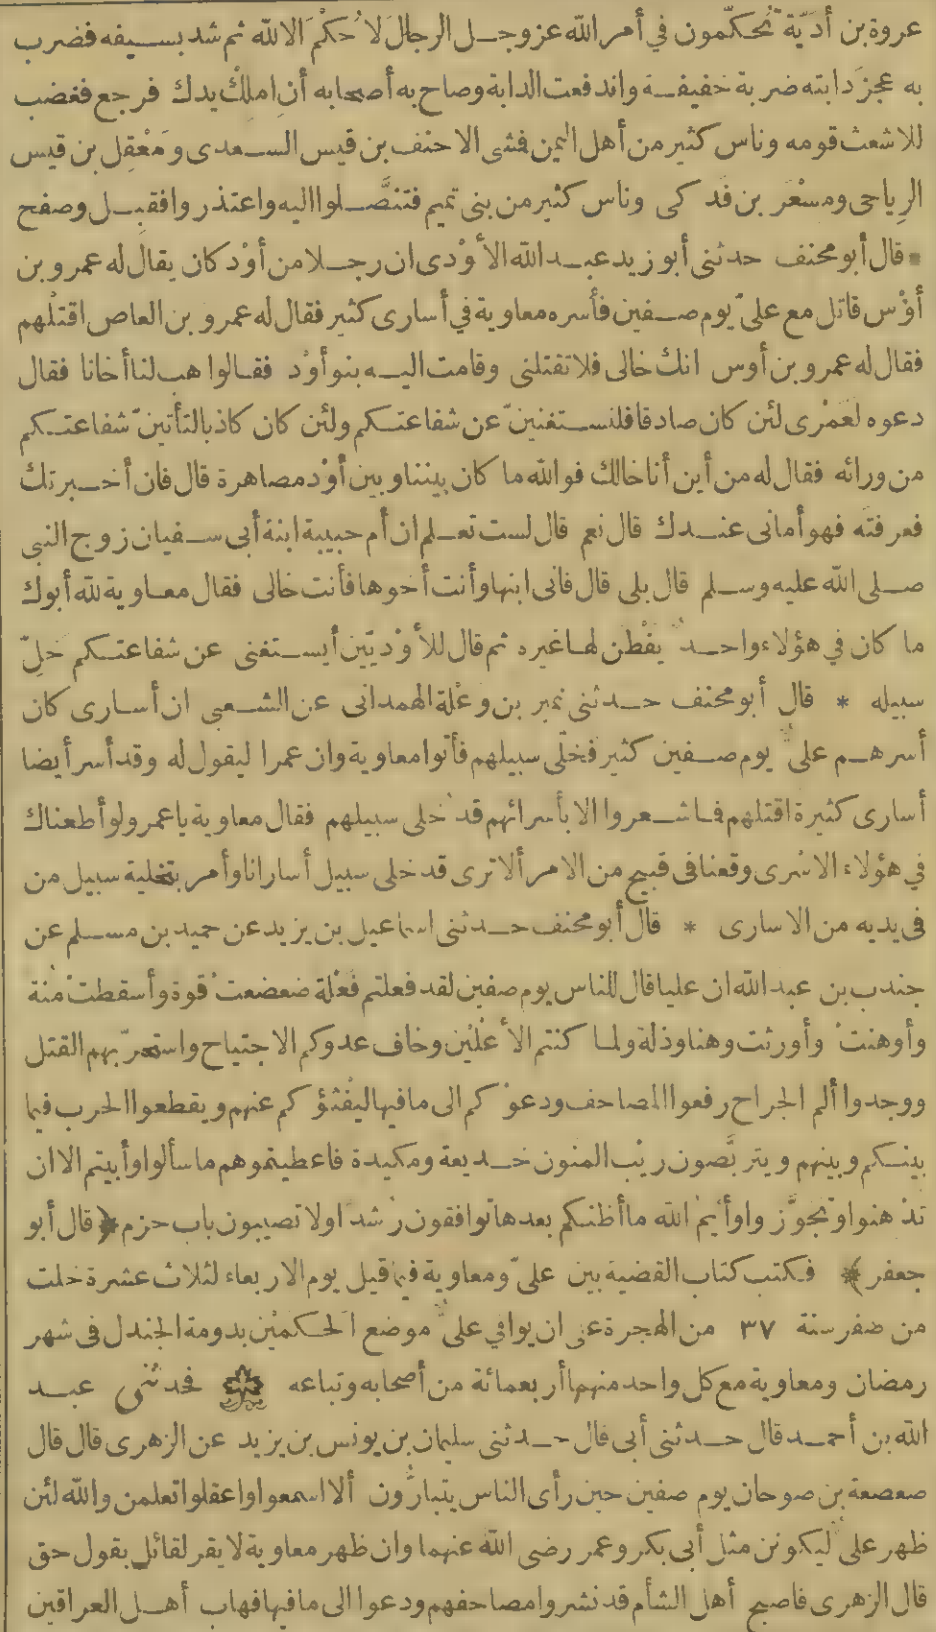 عروة بن أديّة تُحكّمون في أمر الله عز وجل الرجالَ لا حُكْمَ الا لله ثم شد بسيفه فضرب
به عجزَ دابته ضربة خفيفة واندفعت الدابة وصاح به أصحابه أن امْلِكْ يدك فرجع فغضب
للاشعث قومه وناس كثير من أهل اليمن فمشى الاحنف بن قيس السعدى ومَعْقِل بن قيس
الرِياحى ومسْعَر بن فَدَكى وناس كثير من بنى تميم فتنصَّلوا اليه واعتذروا فقبِل وصفح
* قال أبو مخنف حدثنى أبو زيد عبد الله الأوْدى ان رجلا من أوْد كان يقال له عمرو بن
أوْس قاتل مع علىّ يوم صفين فأسره معاوية في أسارى كثير فقال له عمرو بن العاص اقتلْهم
فقال له عمرو بن أوس انك خالى فلا تقتلنى وقامت اليه بنو أوْد فقالوا هب لنا أخانا فقال
دعوه لعَمْرى لئن كان صادقا فلنستغنينّ عن شفاعتكم ولئن كان كاذبا لتأتينّ شفاعتكم
من ورائه فقال له من أين أنا خالك فوالله ما كان بيننا وبين أوْد مصاهرة قال فان أخبرتك
فعرفتَه فهو أمانى عندك قال نعم قال لست تعلم ان أم حبيبة ابنة أبى سفيان زوج النبى
صلى الله عليه وسلم قال بلى قال فانى ابنها وأنت أخوها فأنت خالى فقال معاوية لله أبوك
ما كان في هؤلاء واحد يفْطن لها غيره ثم قال للأوْديّين أيستغنى عن شفاعتكم خلّ
سبيله * قال أبو مخنف حدثنى نمير بن وعْلة الهمدانى عن الشعبى ان أسارى كان
أسرهم علىّ يوم صفين كثير فخلّى سبيلهم فأتوا معاوية وان عمرا ليقول له وقد أسر أيضا
أسارى كثيرة اقتلهم فما شعروا الا بأسرائهم قد خلى سبيلهم فقال معاوية يا عمرو لو أطعناك
في هؤلاء الاسْرى وقعنا فى قبيح من الامر ألا ترى قد خلى سبيل أسارانا وأمر بتخلية سبيل من
فى يديه من الاسارى * قال أبو مخنف حدثنى اسماعيل بن يزيد عن حميد بن مسلم عن
جندب بن عبد الله ان عليا قال للناس يوم صفين لقد فعلتم فَعْلة ضعضعتْ قوة وأسقطتْ مُنة
وأوهنتْ وأورثت وهنا وذلة ولما كنتم الأعْلَيْن وخاف عدوكم الاجتياح واستحرّ بهم القتل
ووجدوا ألم الجراح رفعوا المصاحف ودعوْكم الى ما فيها ليفْثؤكم عنهم ويقطعوا الحرب فيما
بينكم وبينهم ويتربَّصون ريْب المنون خديعة ومكيدة فاعطيتموهم ما سألوا وأبيتم الا ان
تدْهنوا وتجوَّزوا وأيْمُ الله ما أظنكم بعدها توافقون رُشدًا ولا تصيبون باب حزم * ﴿ قال أبو
جعفر ﴾ * فكتب كتاب القضية بين علىّ ومعاوية فيما قيل يوم الاربعاء لثلاث عشرة خلت
من صفر سنة ٣٧ من الهجرة على ان يوافي علىّ موضع الحَكَمَيْن بدومة الجندل فى شهر
رمضان ومعاوية مع كل واحد منهما أربعمائة من أصحابه وتباعه فحدثنى عبد
الله بن أحمد قال حدثنى أبى قال حدثنى سليمان بن يونس بن يزيد عن الزهرى قال قال
صعصعة بن صوحان يوم صفين حين رأى الناس يتبارُّون ألا اسمعوا واعقلوا تعلمن والله لئن
ظهر علىّ ليكونن مثل أبى بكر وعمر رضى الله عنهما وان ظهر معاوية لا يقر لقائل بقول حق
قال الزهرى فاصبح أهل الشأم قد نشروا مصاحفهم ودعوا الى ما فيها فهاب أهل العراقين